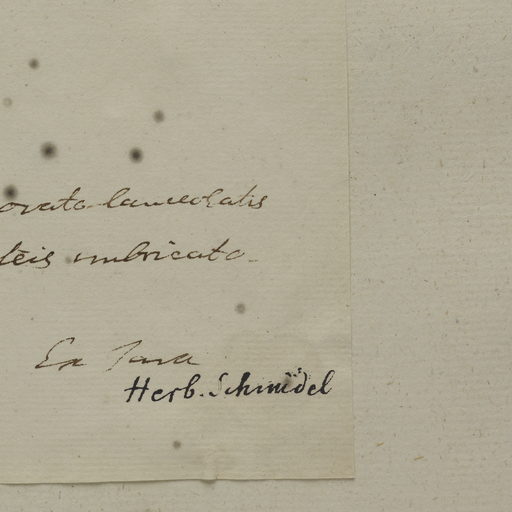 ovato-lanceolatis
teis imbricato-
Ex Java
Herb. Schmidel